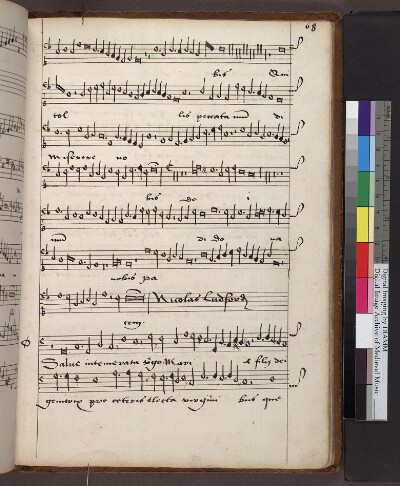 68
bis Qui
tol lis peccata mu di
Miserere no
bis de i
mu di do na
nobis pa
Nicolas Ludford
cem
Salve intemerata v'go Mari a filij dei
genitrix pre ceteris electa virgini bus que
Digital Imaging by DIAMM
Digital Image Archive of Medieval Music